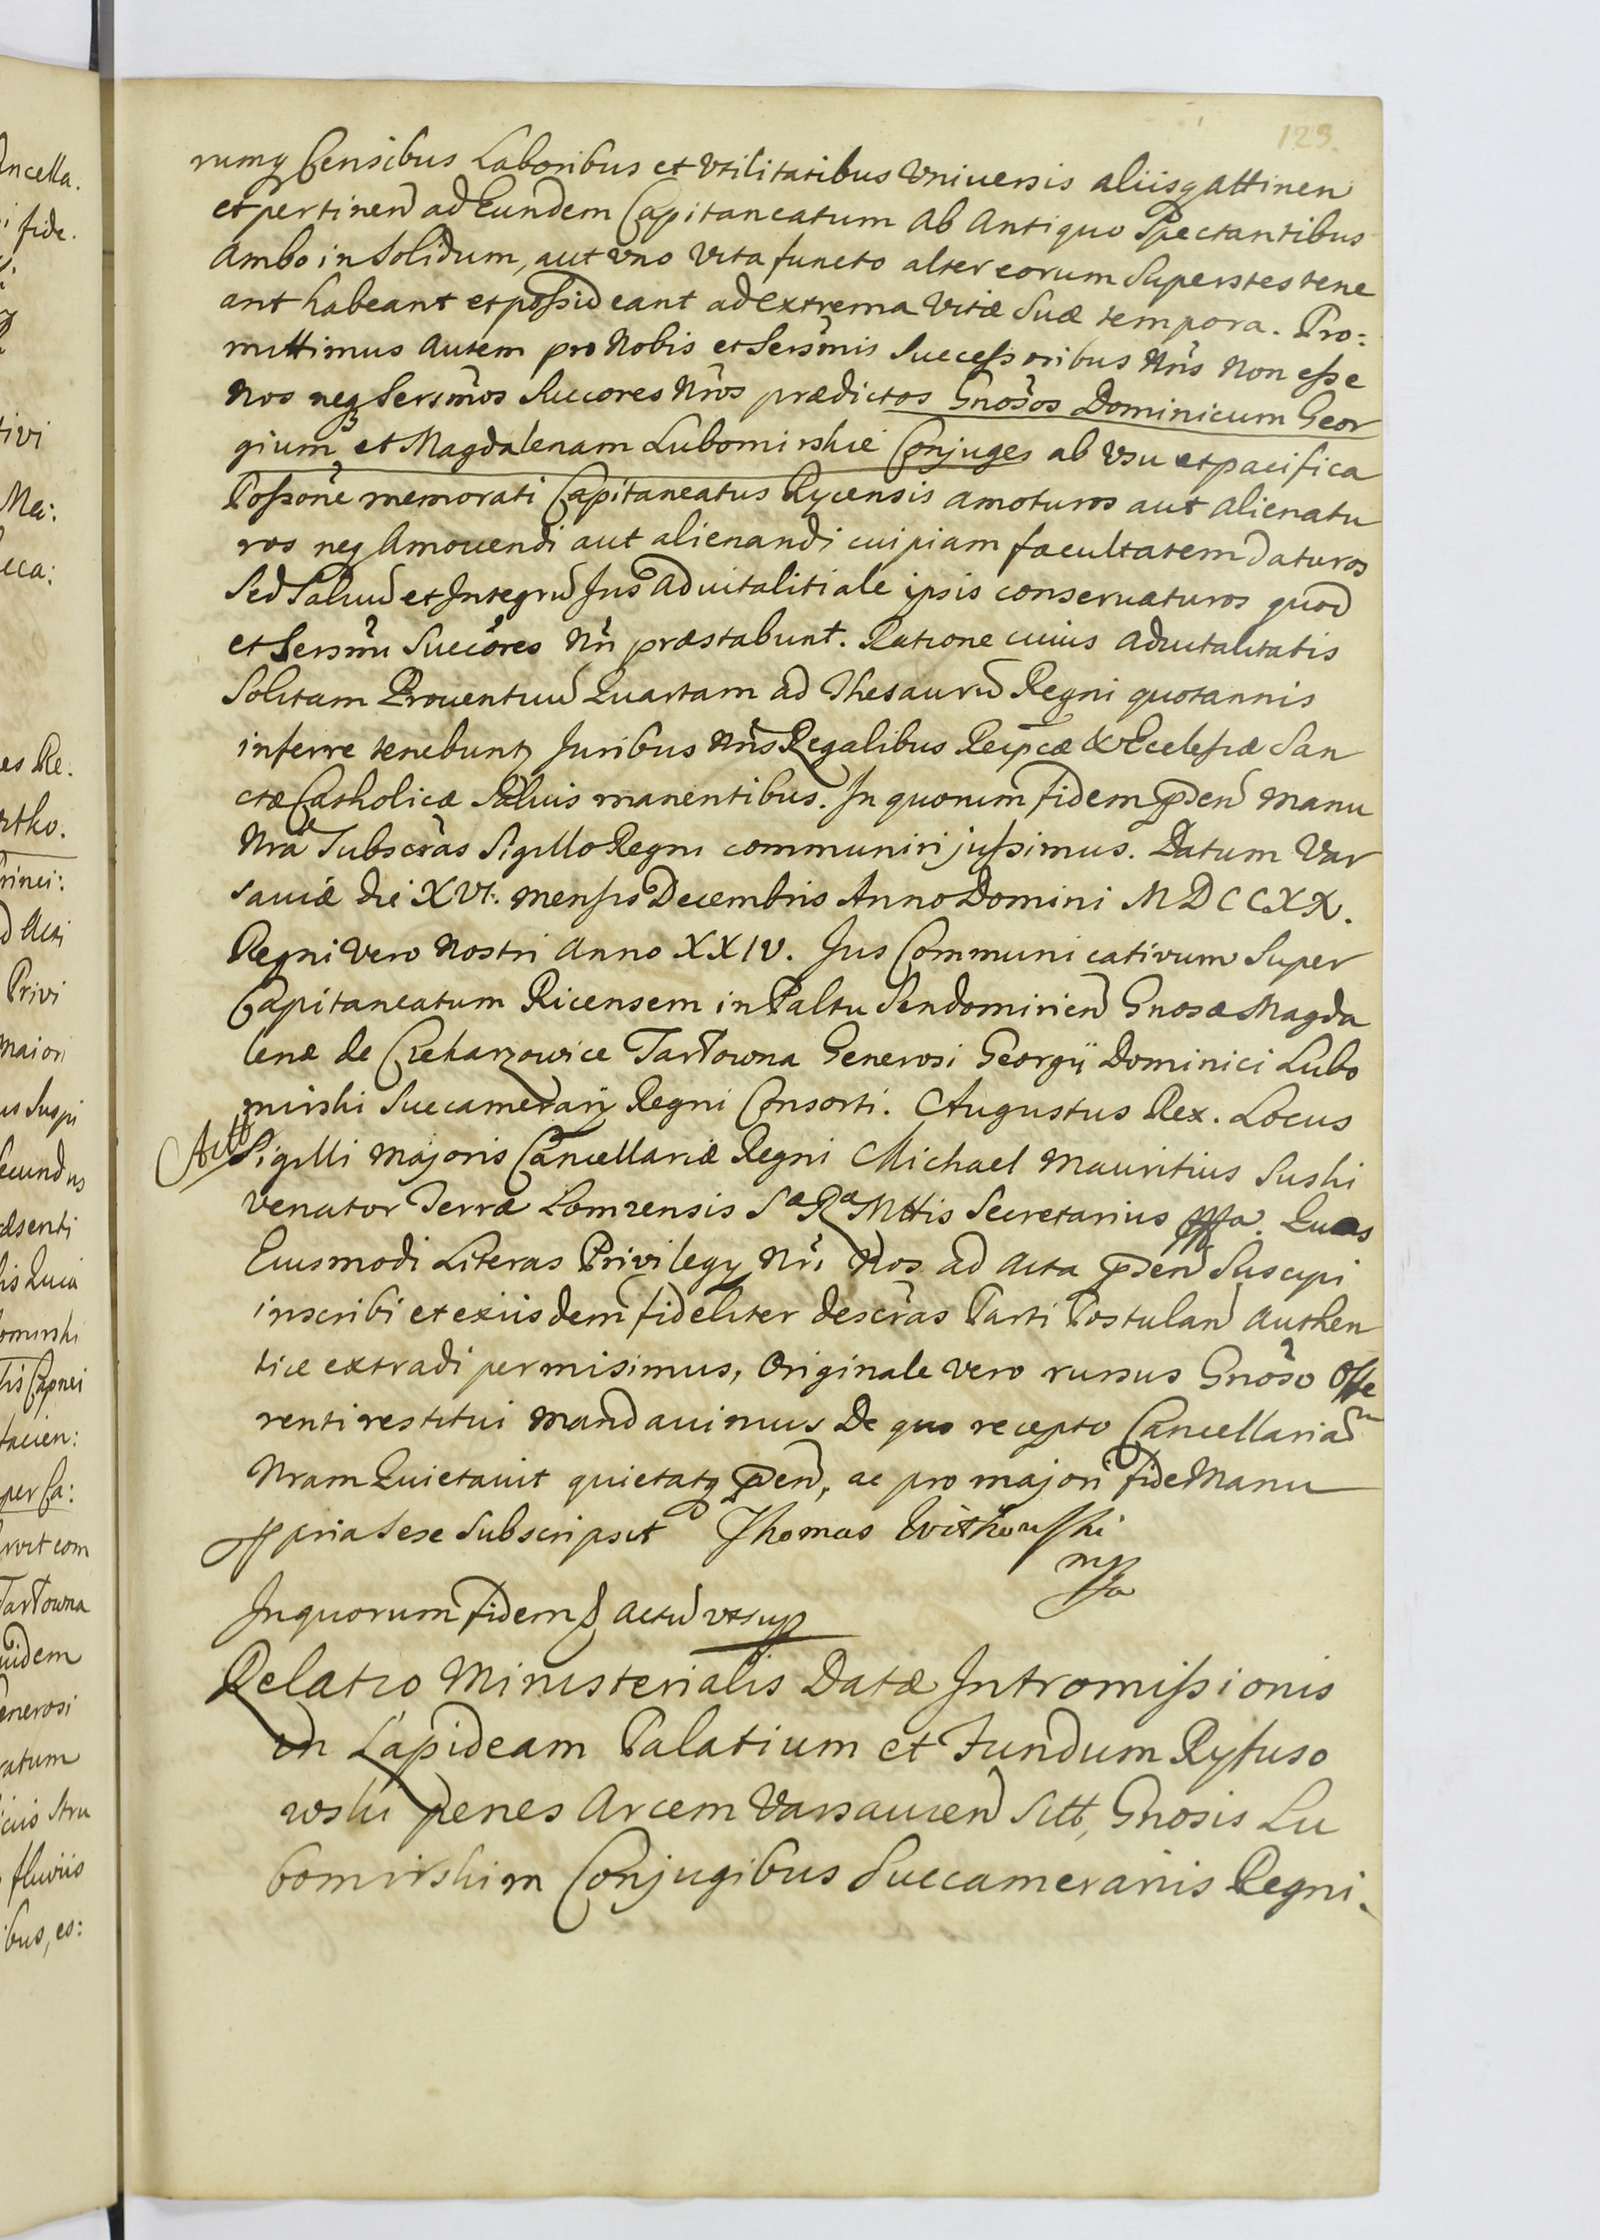 123.
rumq Censibus Laboribus et Vtilitatibus Vniuersis aliisq Attinen
et pertinen ad Eundem Capitaneatum Ab Antiquo Spectantibus
Ambo in Solidum, aut vno Vita functo alter eorum Superstes tene
ant habeant et possideant ad extrema Vitæ Suæ tempora. Pro:
mittimus Autem pro Nobis et Sersmis Successoribus Nris Non esse
Nos neq Sersmos Succores Nros prædictos Gnosos Dominicum Geor
gium et Magdalenam Lubomirskie Conjuges ab Vsu et pacifica
Possone memorati Capitaneatus Rycensis amoturos aut alienatu
ros neq Amouendi aut alienandi cuipiam facultatem daturos
Sed Saluu et Integru Jus Aduitalitiale ipsis conseruaturos quod
et Sersmi Succores Nri præstabunt. Ratione cuius Aduitalitatis
Solitam Prouentuu Quartam ad Thesauru Regni quotannis
inferre tenebuntr Juribus Nris Regalibus Reipcæ & Ecclesiæ San
ctæ Catholicæ Saluis manentibus. In quorum fidem pden manu
Nra Subscras Sigillo Regni communiri jussimus. Datum Var
sauiæ die XVI. mensis Decembris Anno Domini MDCCXX.
Regni Vero Nostri Anno XXIV. Jus Communicativum Super
Capitaneatum Ricensem in Paltu Sendomirien Gnosæ Magda
lenæ de Czekarzowice Tarłowna Generosi Georgii Dominici Lubo
mirski Succamerarij Regni Consorti. Augustus Rex. Locus
Sigilli Majoris Cancellariæ Regni Michael Mauritius Suski
Venator Terræ Lomzensis Sæ Ræ Mttis Secretarius mpa. Quas
Eiusmodi Literas Privilegy Nri Nos ad Acta pden Suscipi
inscribi et exiisdem fideliter descras Parti Postulan Authen
tice extradi permisimus, Originale vero rursus Gnoso Offe
renti restitui mandauimus De quo recepto Cancellariam
Nram Quietauit quietatq pden, ac pro majori fide Manu
ppria Sese Subscripsit Thomas
mpa
In quorum fidem & actu vt sup
Relatio Ministerialis Datæ Intromissionis
in Lapideam Palatium et Fundum
penes Arcem Varsauien Sitt, Gnosis Lu
bomirskim Conjugibus Succamerariis Regni.